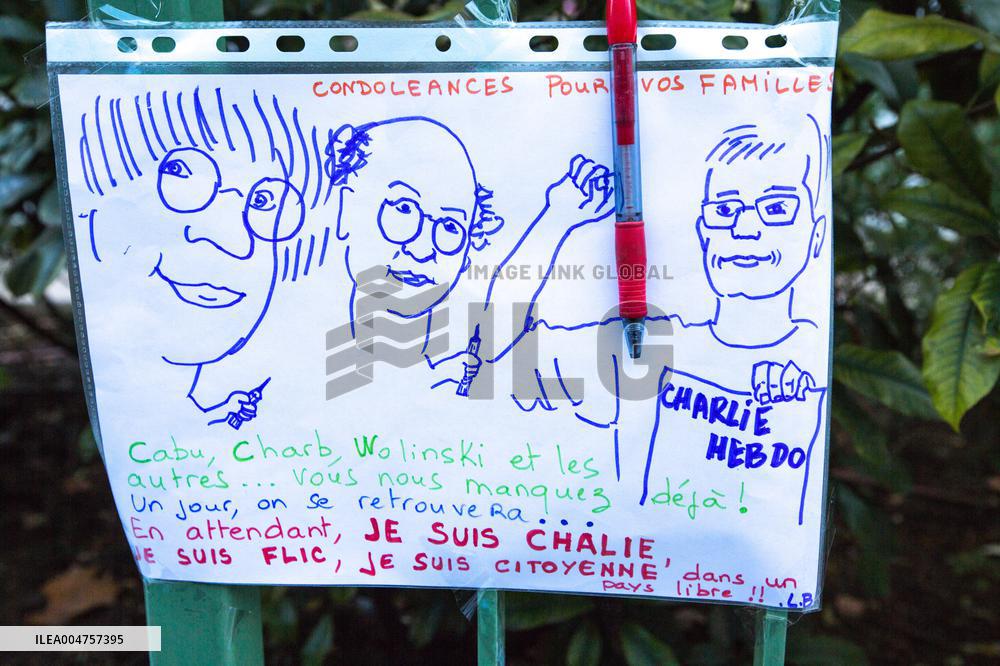 CONDOLEANCES POUR VOS FAMILLES
IMAGE LINK GLOBAL
ILG
CHARLIE
HEBDO
Cabu, Charb, Wolinski et les
autres... vous nous manquez déjà!
Un jour, on se retrouvera...
En attendant, JE SUIS CHALIE,
JE SUIS FLIC, JE SUIS CITOYENNE, dans un
pays libre !! .L.B
ILEA004757395